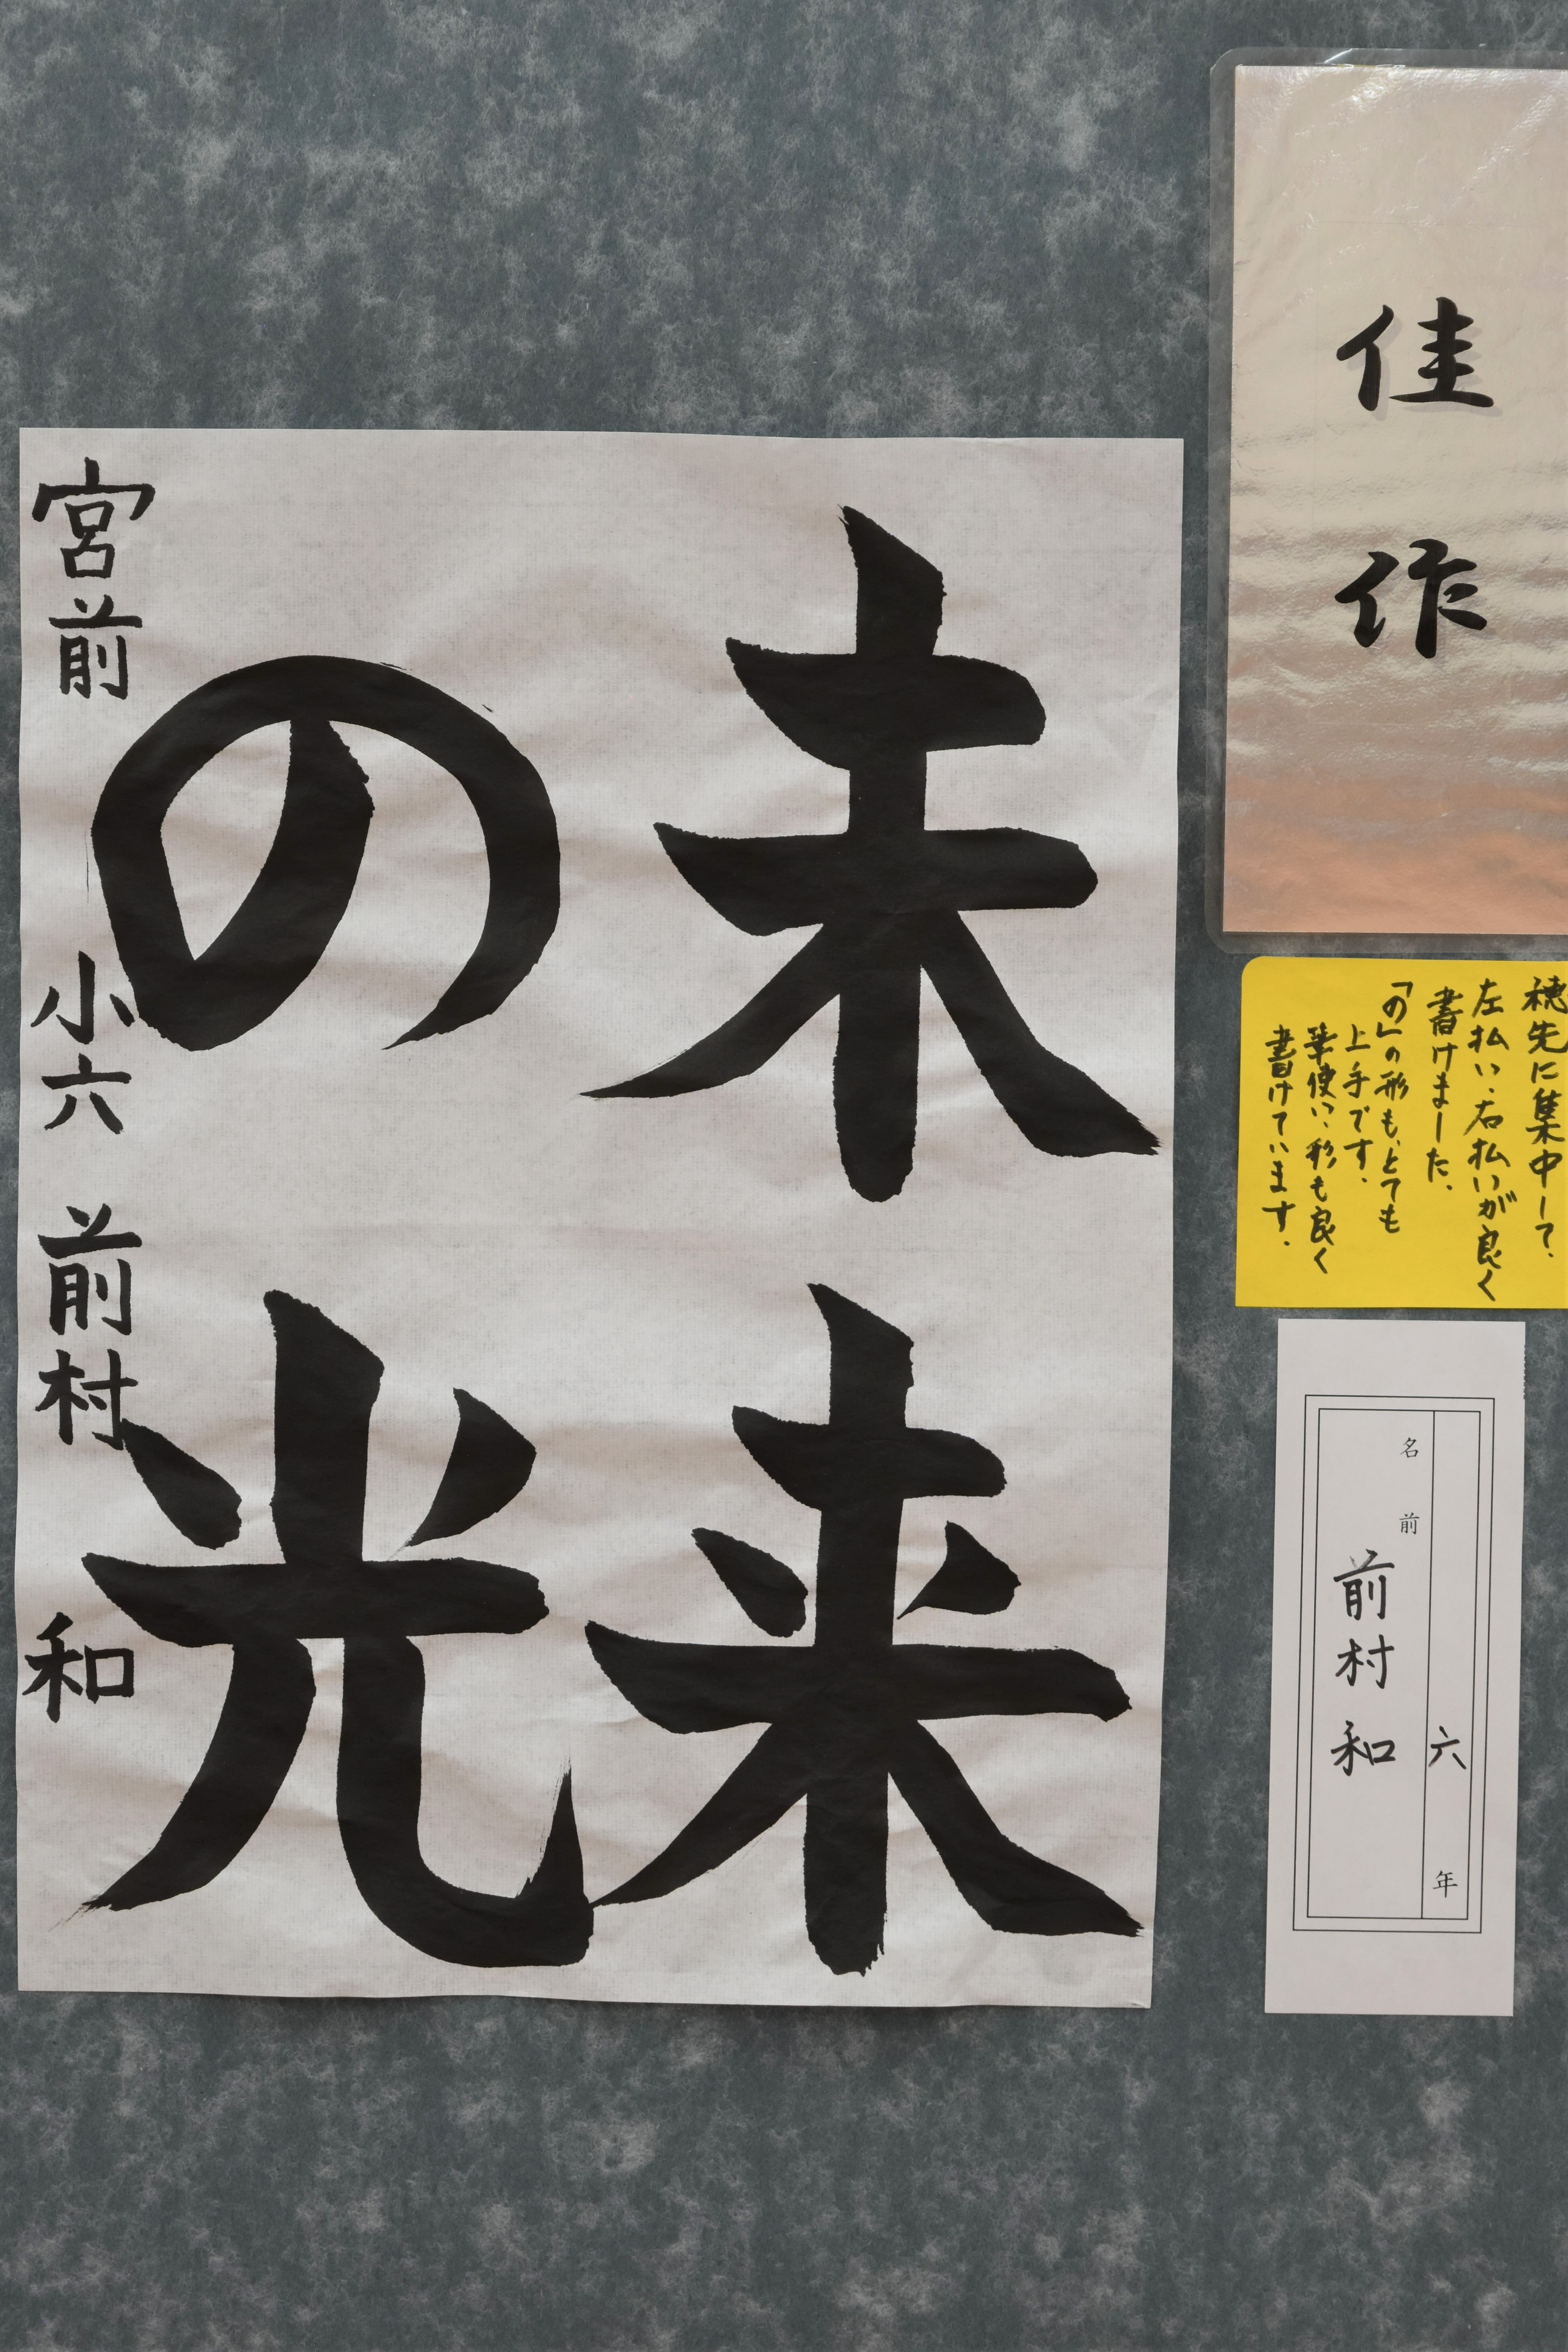 佳作
穂先に集中して、
左払い、右払いが良く
書けました。
「の」の形も、とても
上手です。
筆使い、形も良く
書けています。
六年
名前 前村和
未来
の光
宮前小六 前村和